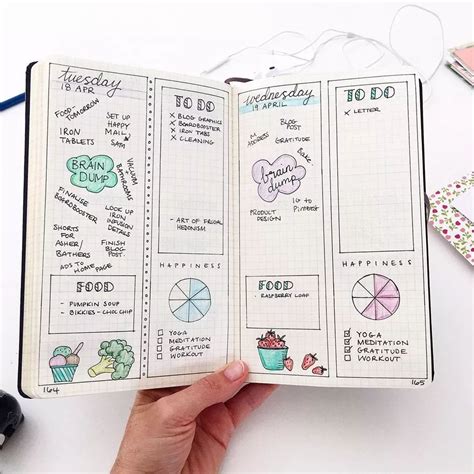 tuesday
18 APR
FOOD
TOMORROW
SET UP
HAPPY
MAIL
SATM
IRON
TABLETS
VACUUM
+
BATHROOMS
BRAIN
DUMP
FINALISE
BOARDBOOSTER
LOOK UP
IRON
INFUSION
DETAILS
SHORTS
FOR
ASHER/
BATHERS
FINISH
BLOG
POST
ADS TO HOME PAGE
FOOD
- PUMPKIN SOUP
- BIKKIES - CHOC CHIP
164
TO DO
X BLOG GRAPHICS
X BOARDBOOSTER
X IRON TABS
X CLEANING
- ART OF FRUGAL
HEDONISM
HAPPINESS
YOGA
MEDITATION
GRATITUDE
WORKOUT
wednesday
19 APRIL
ADDRESS
BLOG
POST
GRATITUDE
Bake
brain
dump
PRODUCT
DESIGN
IG to
Pinterest
FOOD
- RASPBERRY LOAF
TO DO
X LETTER
HAPPINESS
YOGA
MEDITATION
GRATITUDE
WORKOUT
165